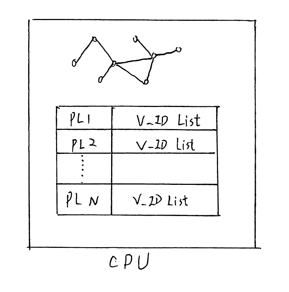 PL1 V_ID List
PL2 V_ID List
⋮
PL N V_ID List
CPU